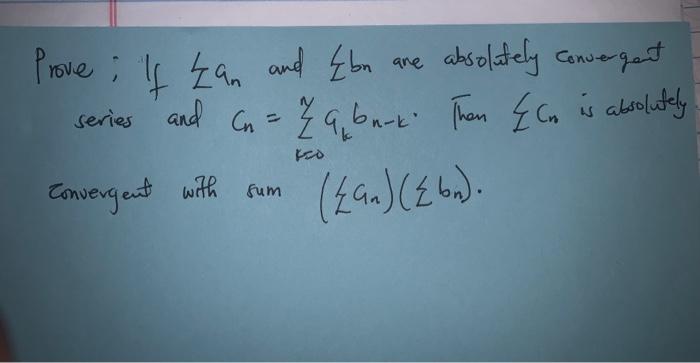 Prove ; If Σan and Σbn are absolutely convergent
series and Cn = Σ^n_{k=0} a_k b_{n-k}. Then ΣCn is absolutely
convergent with sum (Σan)(Σbn).